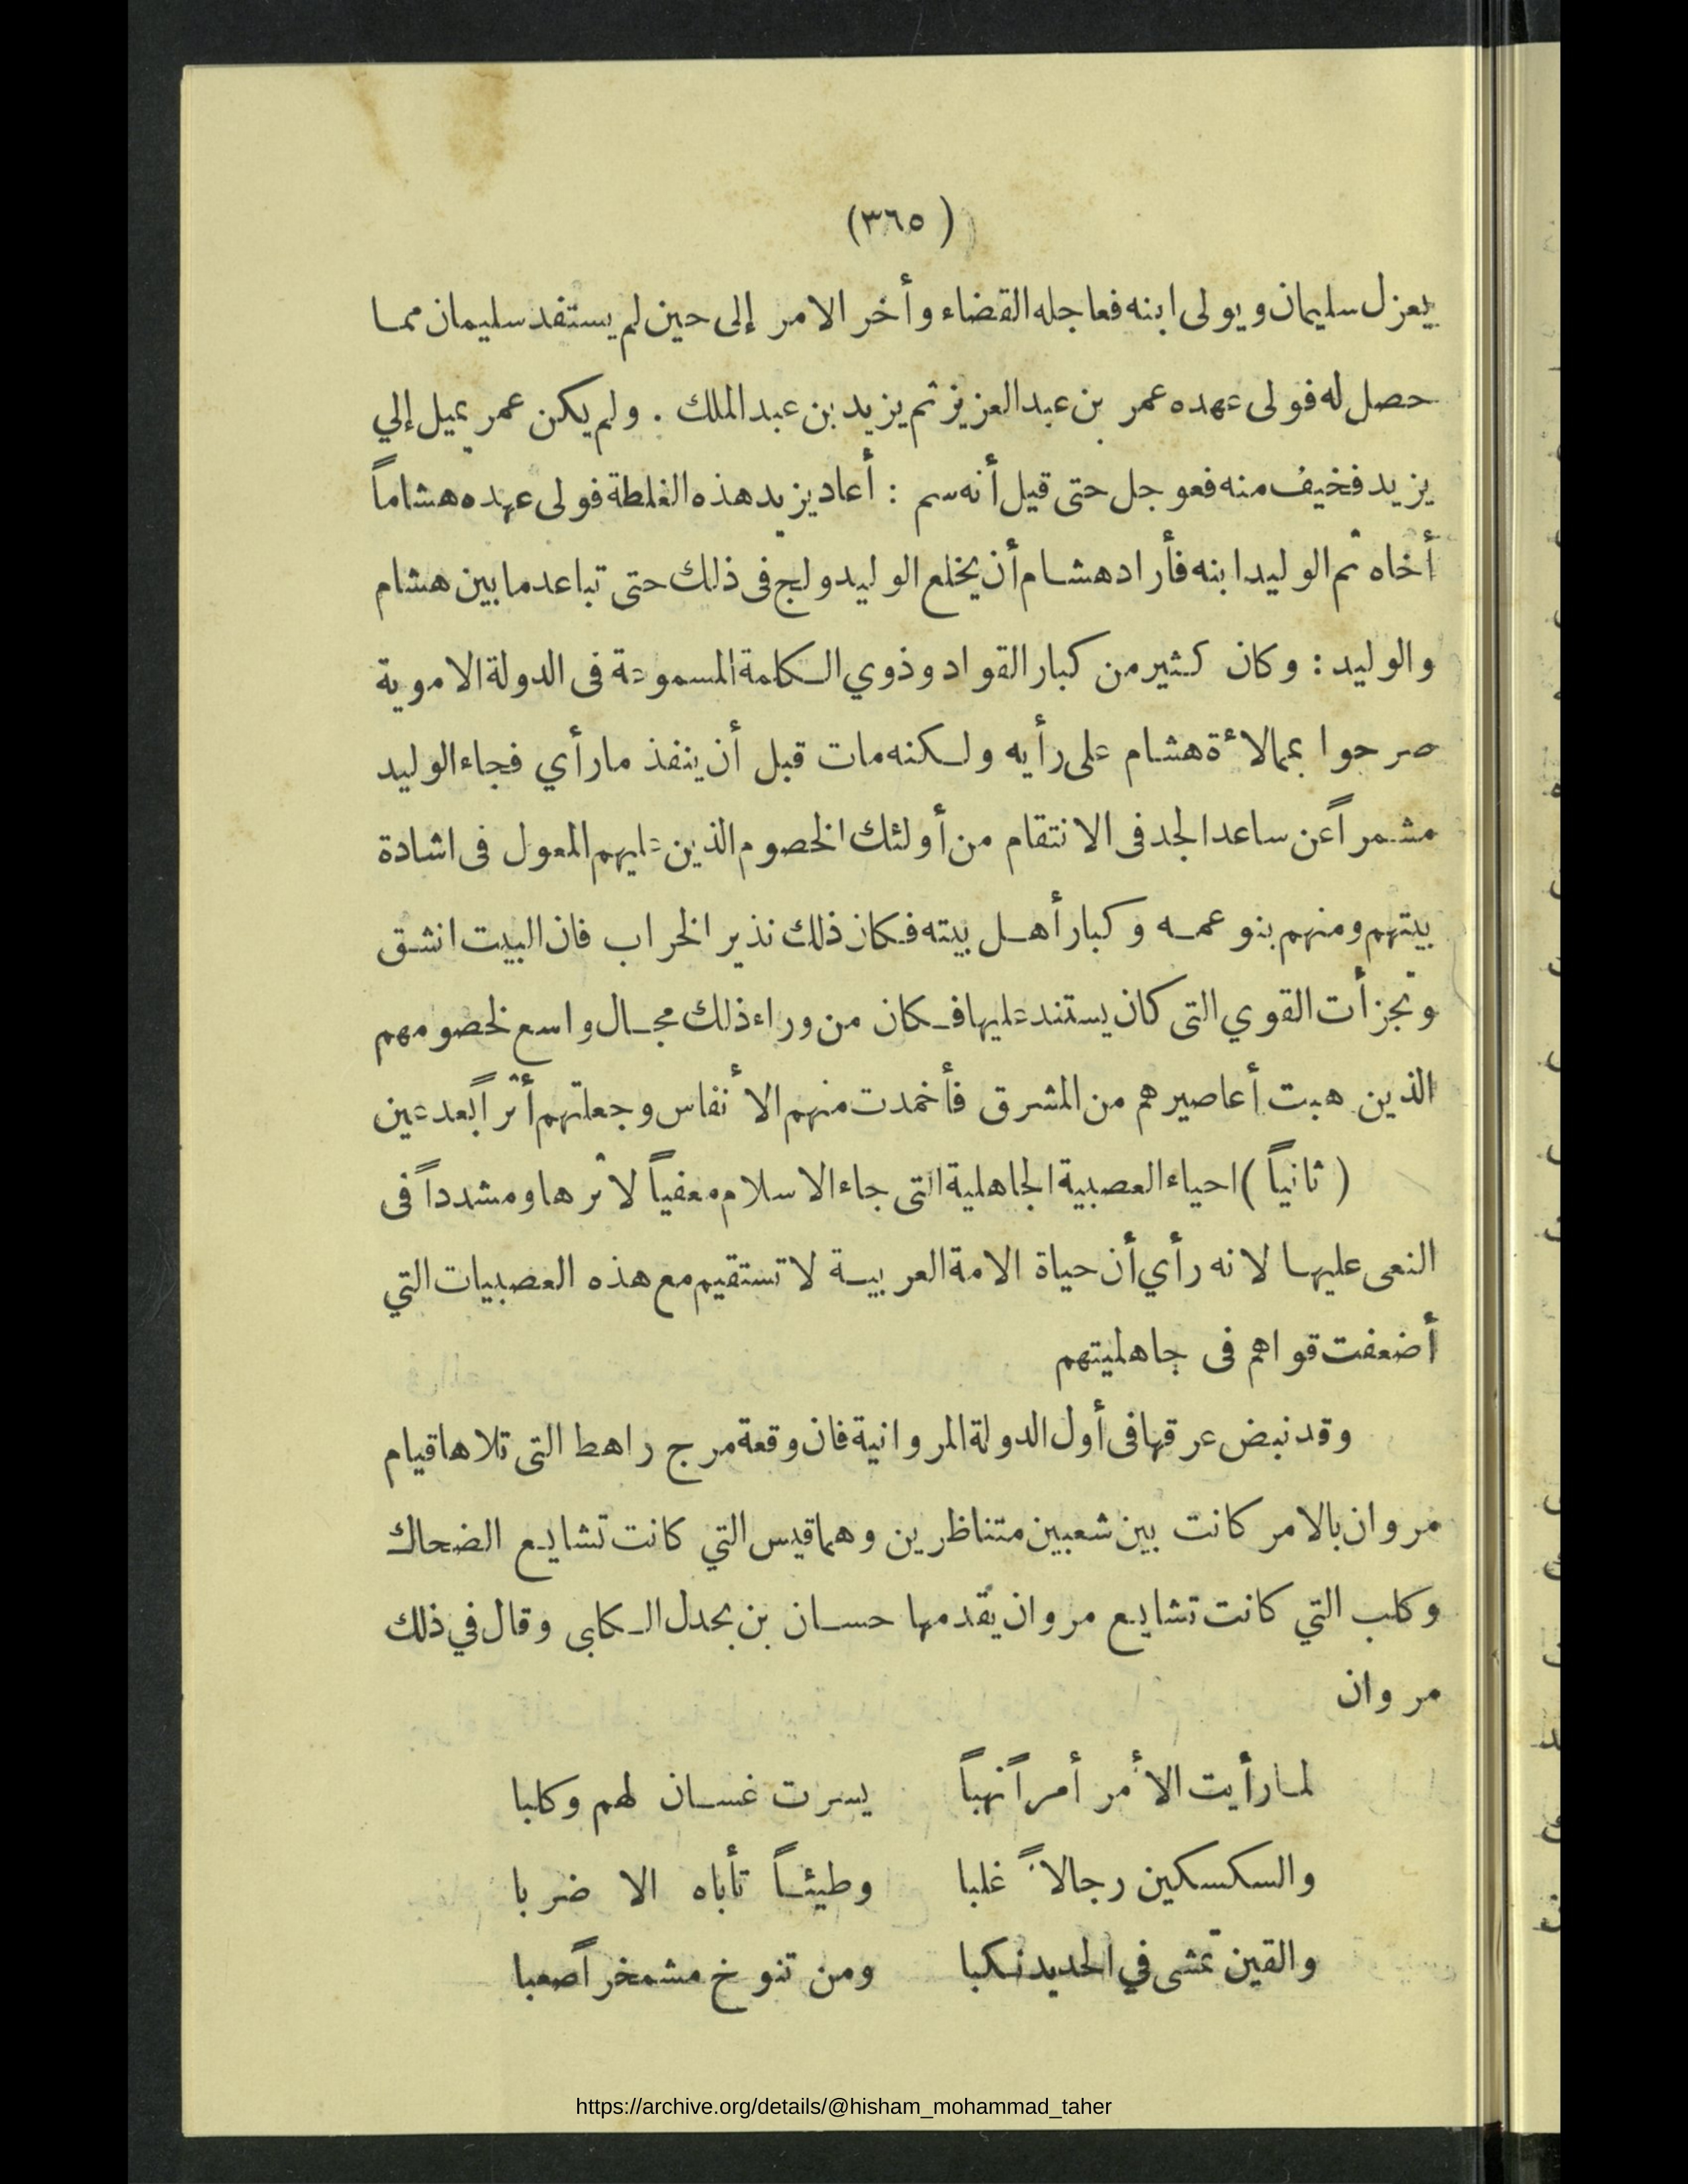 (٣٦٥)
يعزل سليمان ويولى ابنه فعاجله القضاء وأخر الامر إلى حين لم يستفد سليمان مما
حصل له فولى عهده عمر بن عبد العزيز ثم يزيد بن عبد الملك . ولم يكن عمر يميل إلي
يزيد فخيف منه فعوجل حتى قيل أنه سم : أعاد يزيد هذه الغلطة فولى عهده هشاماً
أخاه ثم الوليد ابنه فأراد هشام أن يخلع الوليد ولج فى ذلك حتى تباعد ما بين هشام
والوليد : وكان كثير من كبار القواد وذوي الكلمة المسموعة فى الدولة الاموية
صرحوا بممالأة هشام على رأيه ولكنه مات قبل أن ينفذ ما رأي فجاء الوليد
مشمراً عن ساعد الجد فى الانتقام من أولئك الخصوم الذين عليهم المعول فى اشادة
بيتهم ومنهم بنو عمه وكبار أهل بيته فكان ذلك نذير الخراب فان البيت انشق
وتجزأت القوي التى كان يستند عليها فكان من وراء ذلك مجال واسع لخصومهم
الذين هبت أعاصيرهم من المشرق فأخمدت منهم الأنفاس وجعلتهم أثراً بعد عين
(ثانياً) احياء العصبية الجاهلية التى جاء الاسلام معفياً لأثرها ومشدداً فى
النعى عليها لانه رأي أن حياة الامة العربية لا تستقيم مع هذه العصبيات التي
أضعفت قواهم فى جاهليتهم
وقد نبض عرقها فى أول الدولة المروانية فان وقعة مرج راهط التى تلاها قيام
مروان بالامر كانت بين شعبين متناظرين وهما قيس التي كانت تشايع الضحاك
وكلب التي كانت تشايع مروان يقدمها حسان بن بحدل الكلبى وقال في ذلك
مروان
لما رأيت الأمر أمراً نهباً يسرت غسان لهم وكلبا
والسكسكين رجالاً غلبا وطيئاً تأباه الا ضربا
والقين تمشى في الحديد نكبا ومن تنوخ مشمخراً صعبا
https://archive.org/details/@hisham_mohammad_taher